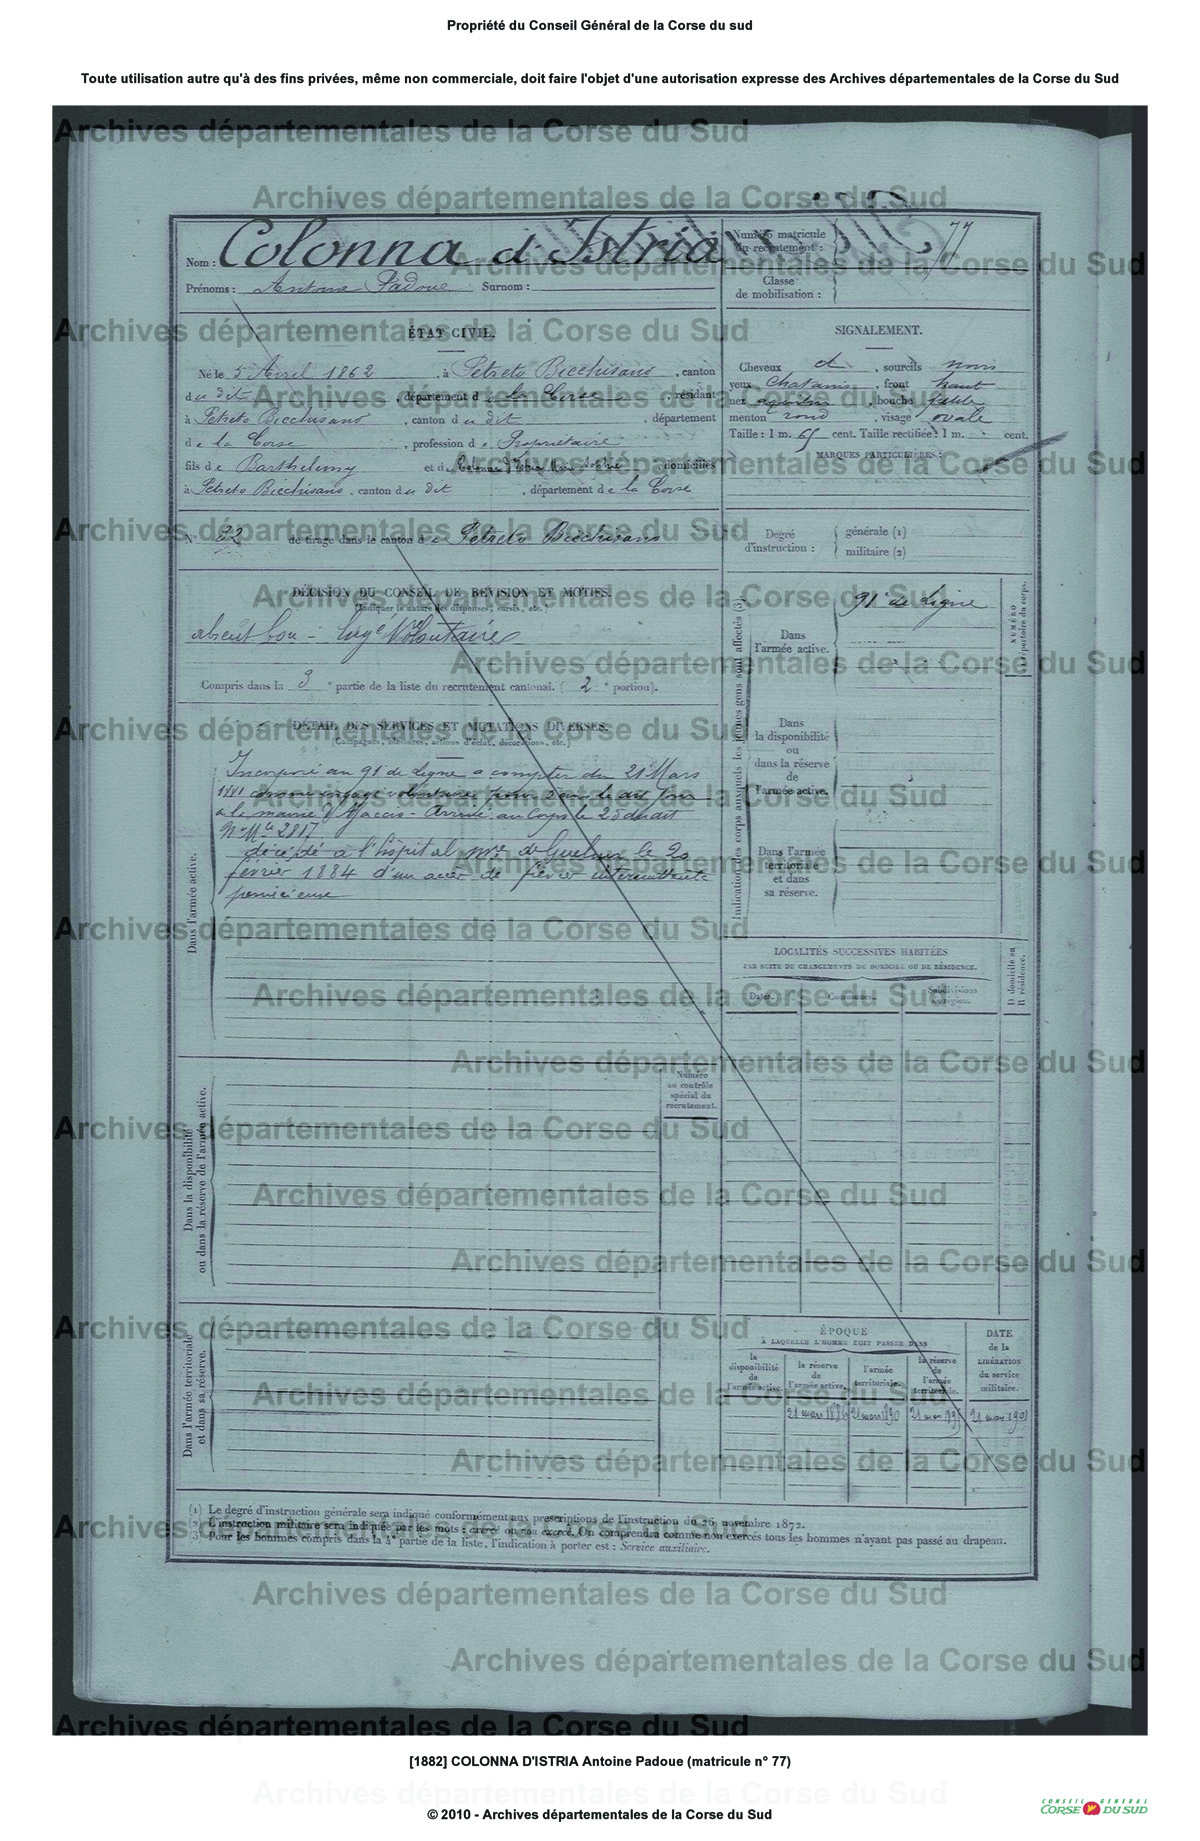 Propriété du Conseil Général de la Corse du sud
Toute utilisation autre qu'à des fins privées, même non commerciale, doit faire l'objet d'une autorisation expresse des Archives départementales de la Corse du Sud
Archives départementales de la Corse du Sud
Nom : Colonna d'Istria
Prénoms : Antoine Padoue Surnom :
Numéro matricule du recrutement : 77
Classe de mobilisation :
ÉTAT CIVIL.
Né le 5 Avril 1862, à Petreto Bicchisano, canton
du dit, département de la Corse, résidant
à Petreto Bicchisano, canton du dit, département
de la Corse, profession de Propriétaire
fils de Barthelemy et de Colonna d'Istria domiciliés
à Petreto Bicchisano, canton du dit, département de la Corse
N° 32 de tirage dans le canton de Petreto Bicchisano
SIGNALEMENT.
Cheveux d, sourcils noirs
yeux chatains, front haut
nez aquilin, bouche petite
menton rond, visage ovale
Taille : 1 m. 65 cent. Taille rectifiée : 1 m. cent.
MARQUES PARTICULIÈRES :
Degré d'instruction : générale (1)
militaire (2)
DÉCISION DU CONSEIL DE RÉVISION ET MOTIFS.
(Indiquer la nature des dispenses, sursis, etc.)
absent bon - Engé Volontaire
Compris dans la 3e partie de la liste du recrutement cantonal. (2e portion).
DÉTAIL DES SERVICES ET MUTATIONS DIVERSES.
(Campagnes, blessures, actions d'éclat, décorations, etc.)
Dans l'armée active.
Incorporé au 91e de Ligne a compter du 21 Mars
1881 comme engagé volontaire pour 5 ans le dit jour
a la mairie d'Ajaccio - Arrivé au Corps le 25 du dit
No Mle 2817
décédé à l'hôpital mre de Guelma le 20
février 1884 d'un accès de fièvre intermittente
pernicieuse
Dans la disponibilité ou dans la réserve de l'armée active.
Numéro au contrôle spécial du recrutement.
Dans l'armée territoriale et dans sa réserve.
Indication des corps auxquels les jeunes gens sont affectés (3).
Dans l'armée active. 91e de Ligne
NUMÉRO au répertoire du corps.
Dans la disponibilité ou dans la réserve de l'armée active.
Dans l'armée territoriale et dans sa réserve.
LOCALITÉS SUCCESSIVES HABITÉES
PAR SUITE DE CHANGEMENTS DE DOMICILE OU DE RÉSIDENCE.
Dates. Communes. Subdivisions de région. D domicile ou R résidence.
ÉPOQUE
À LAQUELLE L'HOMME DOIT PASSER DANS
la disponibilité de l'armée active. la réserve de l'armée active. l'armée territoriale. la réserve de l'armée territoriale.
DATE de la LIBÉRATION du service militaire.
21 mars 1886 21 mars 1890 21 mars 1895 21 mars 1901
(1) Le degré d'instruction générale sera indiqué conformément aux prescriptions de l'instruction du 26 novembre 1872.
(2) L'instruction militaire sera indiquée par les mots : exercé ou non exercé. On comprendra comme non exercés tous les hommes n'ayant pas passé au drapeau.
(3) Pour les hommes compris dans la 4e partie de la liste, l'indication à porter est : Service auxiliaire.
[1882] COLONNA D'ISTRIA Antoine Padoue (matricule n° 77)
© 2010 - Archives départementales de la Corse du Sud
CONSEIL GÉNÉRAL
CORSE DU SUD